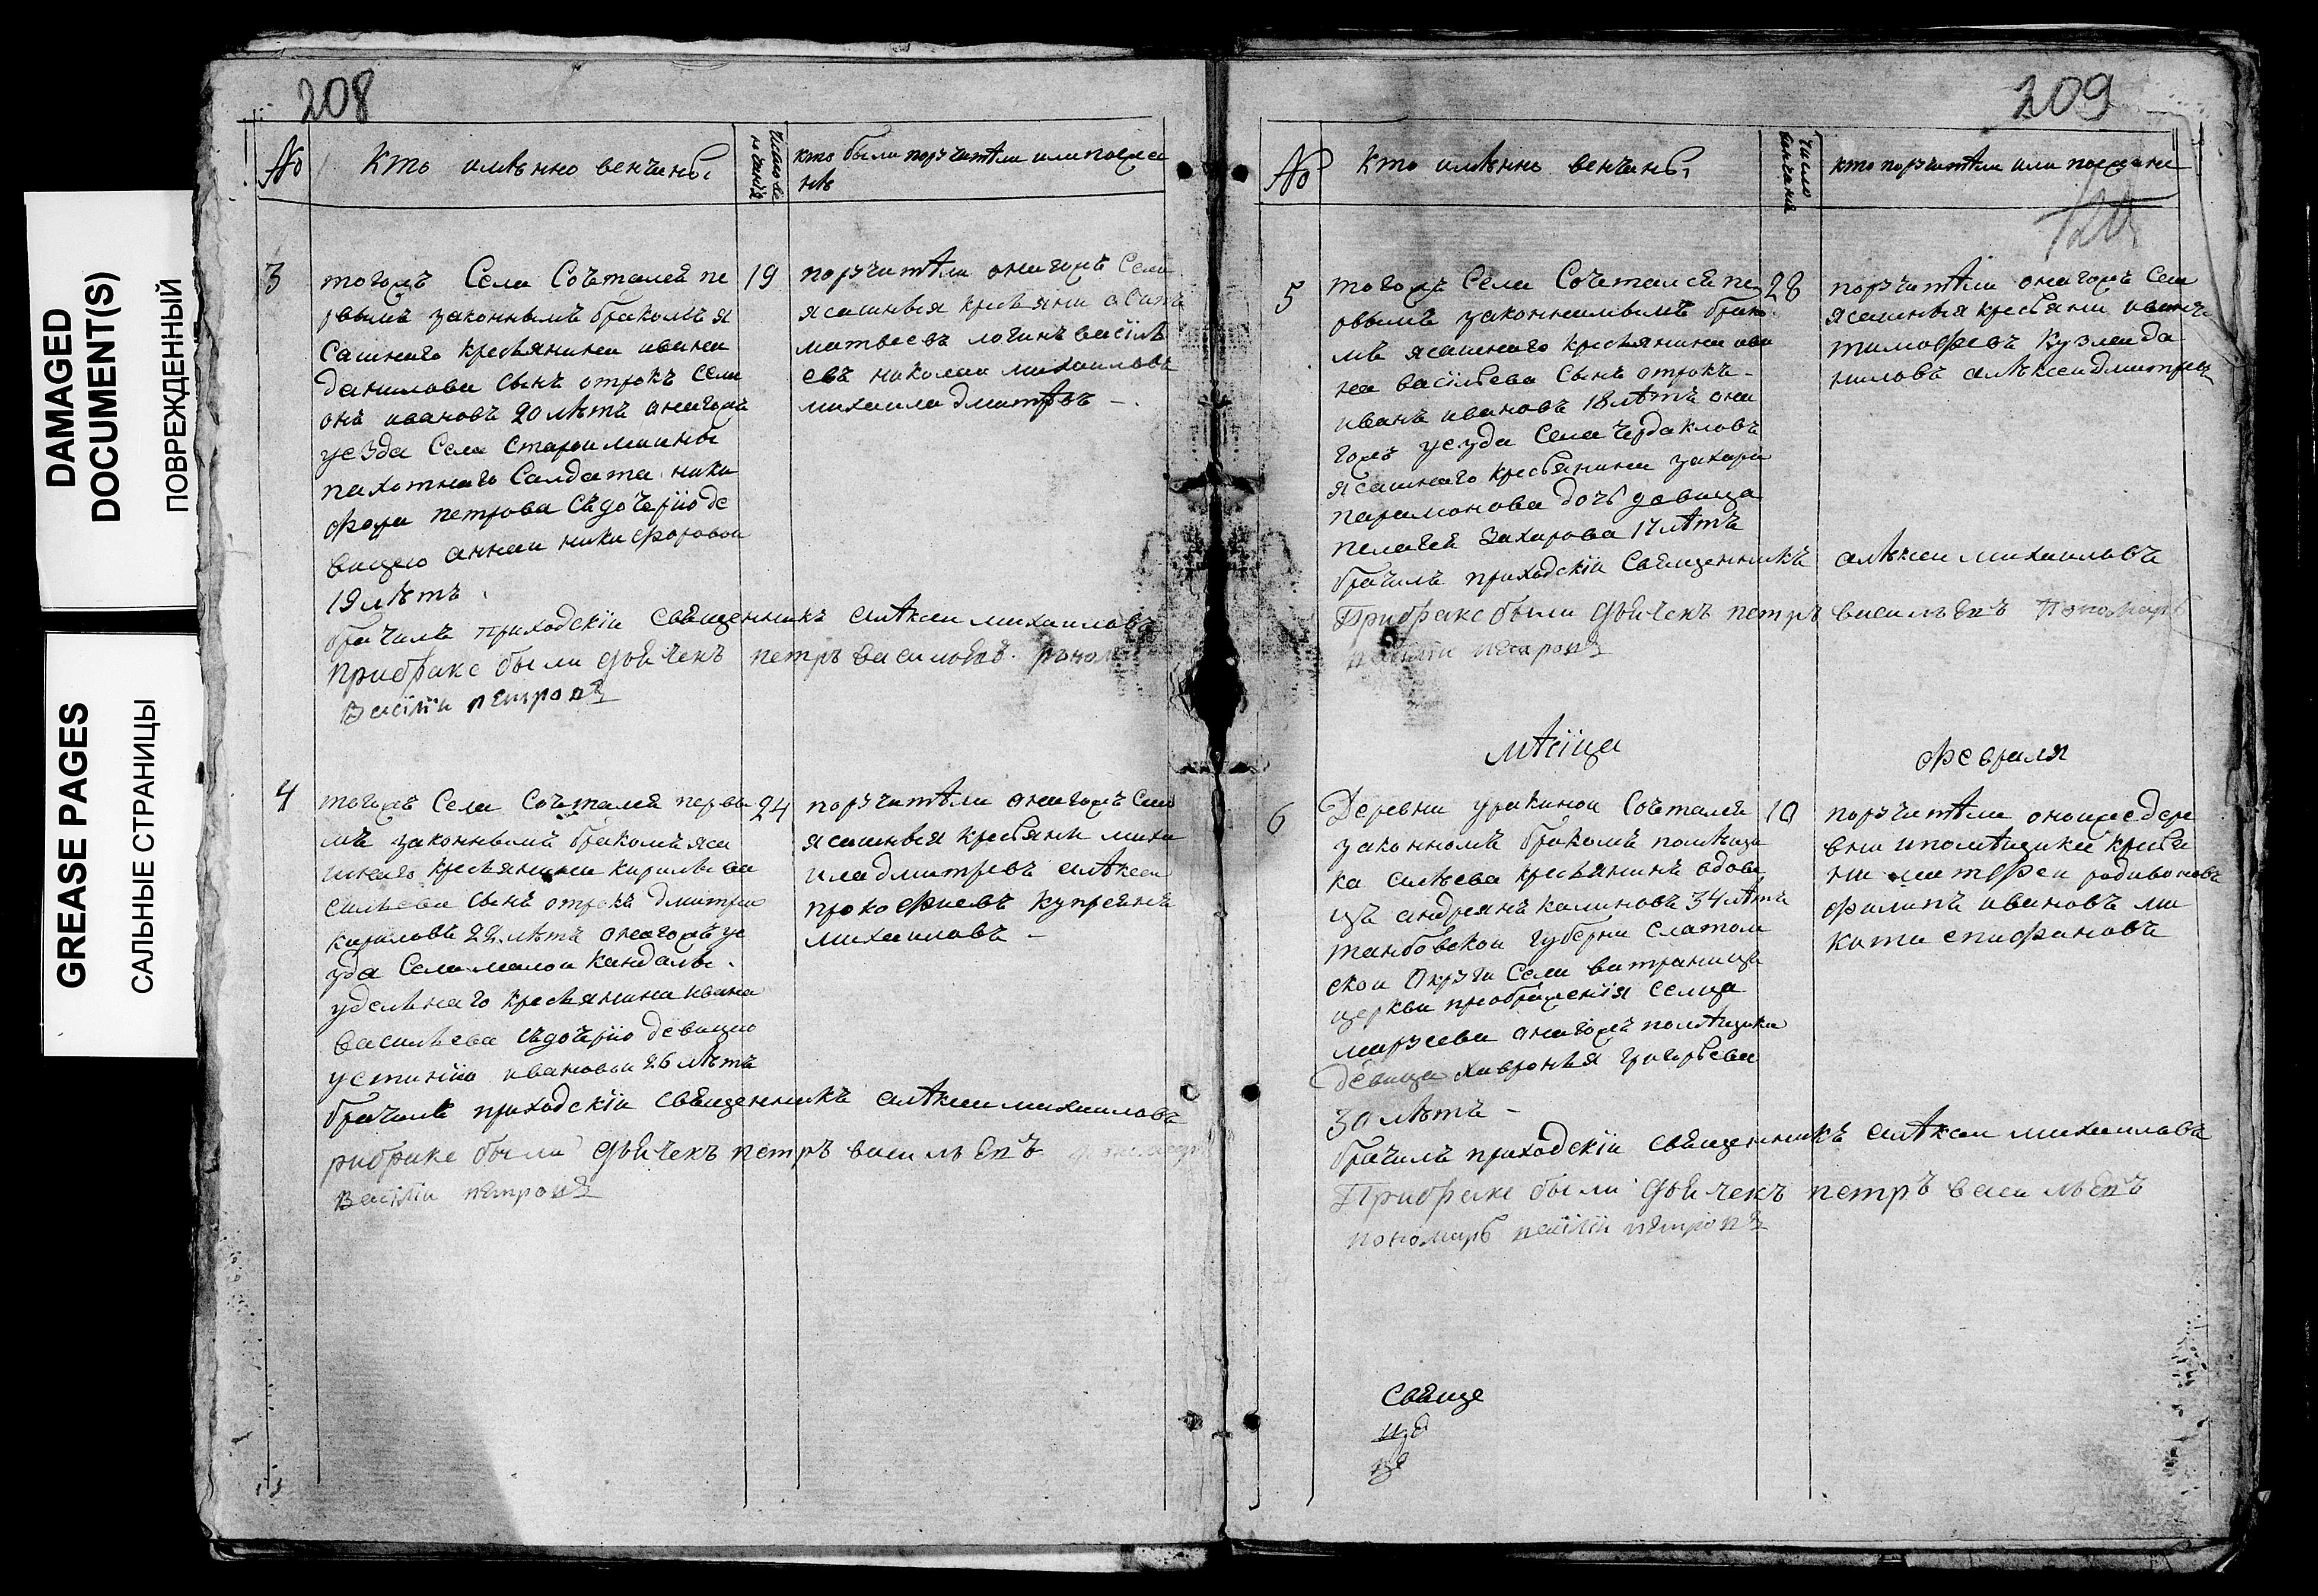 DAMAGED
DOCUMENT(S)
ПОВРЕЖДЕННЫЙ
GREASE PAGES
САЛЬНЫЕ СТРАНИЦЫ
208
№
Кто имѣнно венчаны
Число ве
нчанiя
кто были порꙋчитѣли или поезжа
нѣ
3
тогожъ Села Сочъталсѧ пе
рвымъ законнымъ бракомъ я
сашнаго кресьянина ивана
данилова сынъ отрокъ Семи
онъ ивановъ 20 лѣтъ онагожъ
уезда Села Старои маины
пахотнаго Салдата ники
фора петрова съдочерїю де
вицею аннаи никифоровои
19 лѣтъ
19
порꙋчитѣли онагожъ Села
ясашныя кресьяни
матвеевъ логинъ василь
евъ николаи михаиловъ
михаила дмитревъ –
брачилъ приходскїи свѧщенникъ алѣксеи михаиловъ
Прибраке были дьѧчекъ петръ васильевъ
Василїи петровъ
4
тогожъ Села Сочъталсѧ первы
мъ законнымъ бракомъ яса
шнаго кресьянина кирилы ва
сильева сынъ отрокъ дмитреи
кириловъ 22 лѣтъ онагожъ уе
зда Села малои кандалы
удельнаго кресьянина ивана
Васильева съдочерїю девицою
устинїю ивановои 26 лѣтъ
24
порꙋчитѣли онагожъ Села
ясашныя кресьяни миха
ила дмитревъ алѣксеи
прокофиевъ купреянъ
михаиловъ –
брачилъ приходскїи свѧщенникъ алѣксеи михаиловъ
рибраке были дьѧчекъ петръ васильевъ
Василїи петровъ
209
№
Кто имѣнно венчаны
Число
венчания
кто порꙋчитѣли или поезжане
5
тогожъ Села Сочъталсѧ пе
рвымъ законнымъ брако
мъ ясашнаго кресьянина ива
на васильева Сынъ отрокъ –
иванъ ивановъ 18 лѣтъ она
гожъ уезда Села Чердакловъ
ясашнаго кресьянина захара
парамонова дочь девица
пелагея Захарова 17 лѣтъ
28
порꙋчитѣли онагожъ Села
ясашныя кресьяни иванъ
тимофеевъ Кузма да
ниловъ алѣксеи дмитревъ
брачилъ приходскїи Свѧщенникъ алѣксеи михаиловъ
Прибраке были дьѧчекъ петръ васильевъ Пономарь
василїи петровъ
мѣсїца февраля
6
Деревни уракинои Сочъталсѧ
законномъ бракомъ помѣщи
ка кресьянинъ вдове
цъ андреянъ калиновъ 34 лѣтъ
танбовскои губерни елатом
скои Окрꙋги Села
церкви преображенїя Селца
онагожъ помѣщика
девица хавронья григорьева
30 лѣтъ –
10
порꙋчитѣли оноижедере
вни ипомѣщика кресья
ни матфеи родивоновъ
филипъ ивановъ ми
кита епифановъ
брачилъ приходскїи свѧщенникъ алѣксеи михаиловъ
Прибраке были дьѧчекъ петръ васильевъ
пономарь василїи петровъ
Свѧще